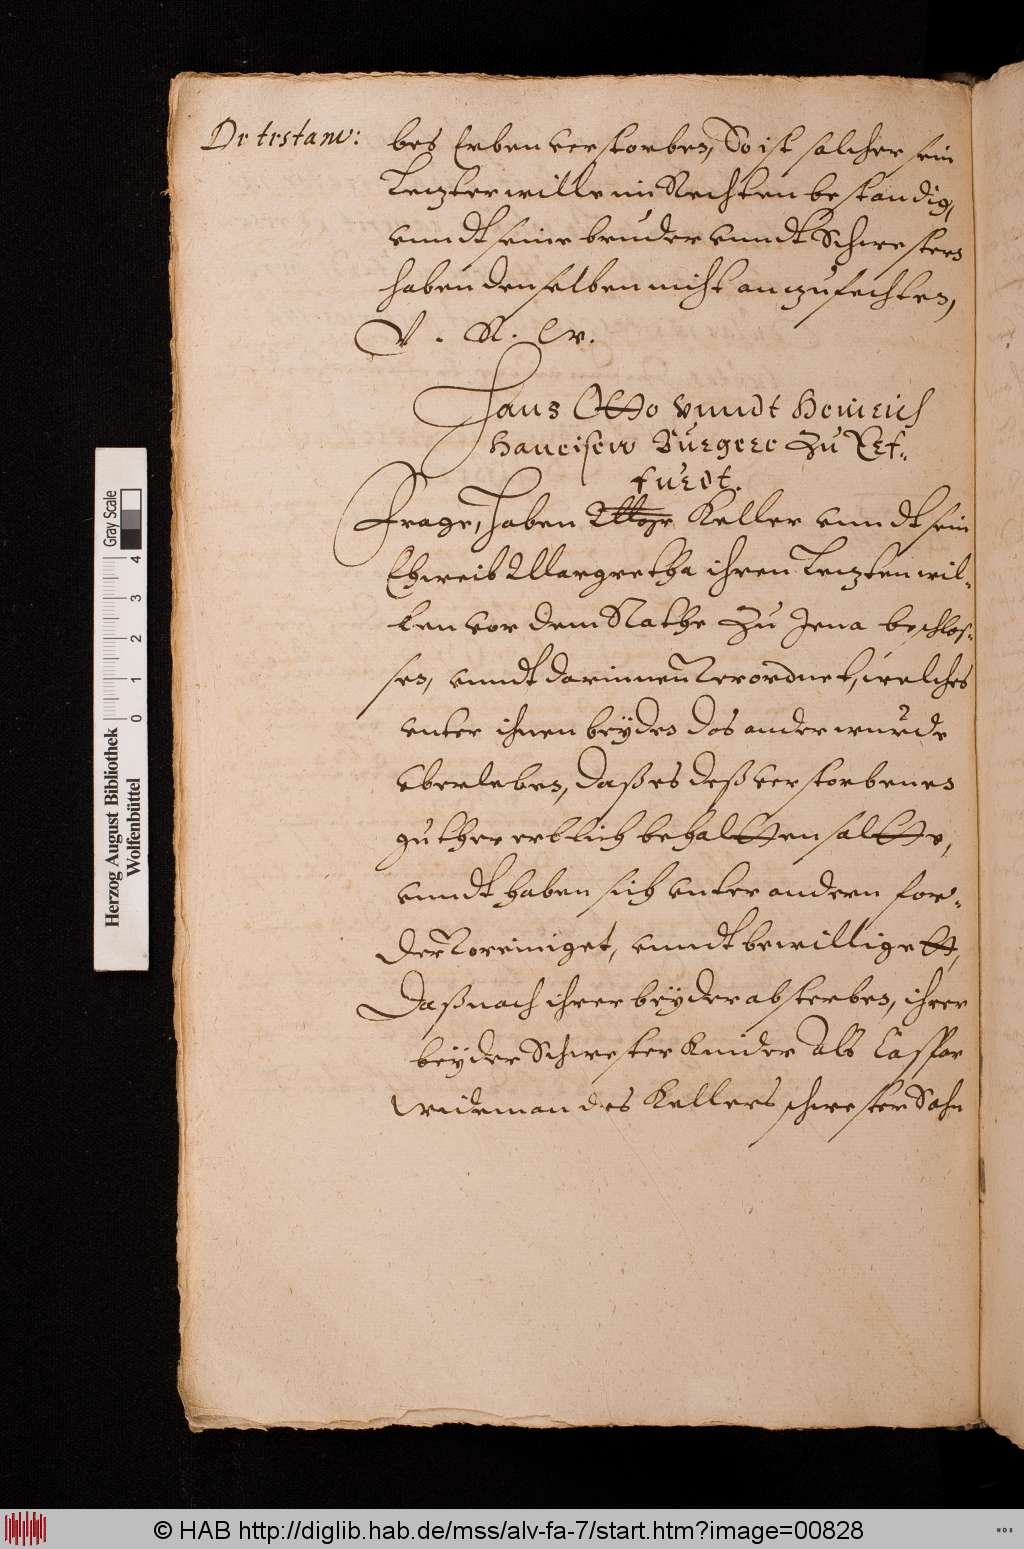 De testam:
bes Erben verstorben, So ist solcher sein
Letzter wille in Rechten bestandig,
vnndt seine bruder vnndt Schwestern
haben denselben nicht anzufechten,
V. R. W.
Hans Otto vnndt Heinrich
Hanrisen Burger zu Erf-
furdt.
Frage, haben Keller vnndt sein
Eheweib Margretha ihren Letzten wil-
len vor dem Rathe zu Jena beschlos-
sen, vnndt darinnen Verordnet, welches
vnter ihnen beyden das ander wurde
vberleben, daß es deß verstorbenen
guther erblich behaltten soltte,
vnndt haben sich vnter andern for-
der Voreiniget, vnndt bewilligett,
Daß nach ihrer beyder absterben, ihrer
beyder Schwester Kinder Als Caspar
Wideman des Kellers schwester Sohn
Gray Scale
0 1 2 3 4
Herzog August Bibliothek
Wolfenbüttel
© HAB http://diglib.hab.de/mss/alv-fa-7/start.htm?image=00828